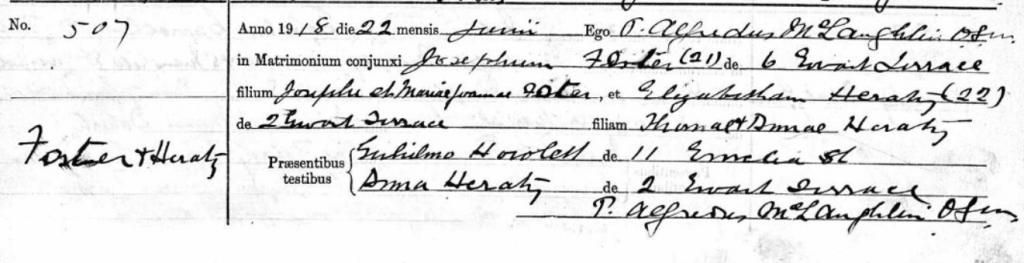 No. 507
Anno 1918 die 22 mensis Junii Ego P. Alfredus McLaughlin O.S.M.
in Matrimonium conjunxi Josephum Foster (21) de 6 Ewart Terrace
filium Josephi et Mariae Joannae Foster, et Elizabetham Heraty (22)
de 2 Ewart Terrace filiam Thomae & Annae Heraty
Foster & Heraty
Præsentibus testibus Gulielmo Howlett de 11 Emelia St
Anna Heraty de 2 Ewart Terrace
P. Alfredus McLaughlin O.S.M.